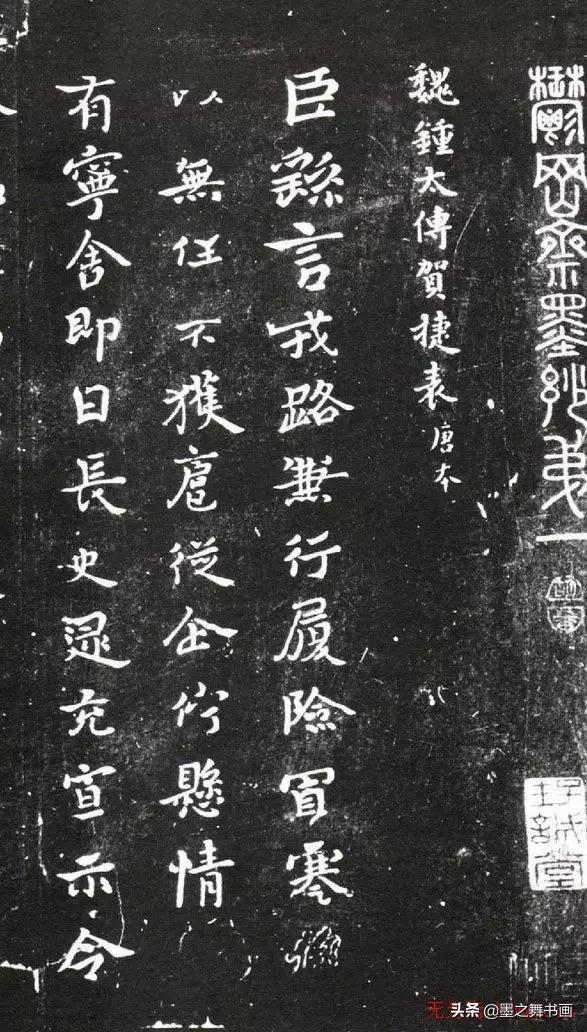 鬱岡齋墨妙弟一
魏鍾太傅賀捷表唐本
臣繇言戎路兼行履險冒寒
以無任不獲扈從企佇懸情
有寧舍即日長史逯充宣示令
头条 @墨之舞书画